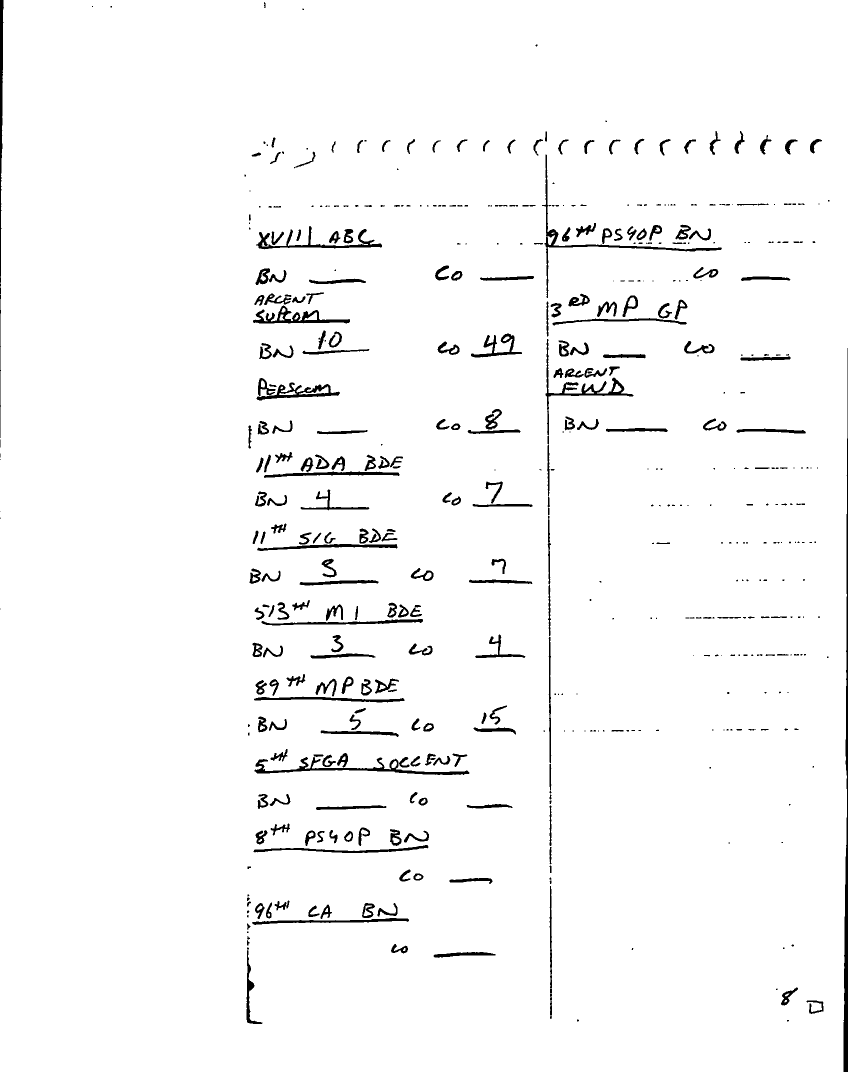 XVIII ABC
BN ____ CO ____
ARCENT
SUPCOM
BN 10 CO 49
PERSCOM
BN ____ CO 8
11TH ADA BDE
BN 4 CO 7
11TH SIG BDE
BN 3 CO 7
513TH MI BDE
BN 3 CO 4
89TH MP BDE
BN 5 CO 15
5TH SFGA SOCCENT
BN ____ CO ____
8TH PSYOP BN
CO ____
96TH CA BN
CO ____
96TH PSYOP BN
CO ____
3RD MP GP
BN ____ CO ____
ARCENT
FWD
BN ____ CO ____
8